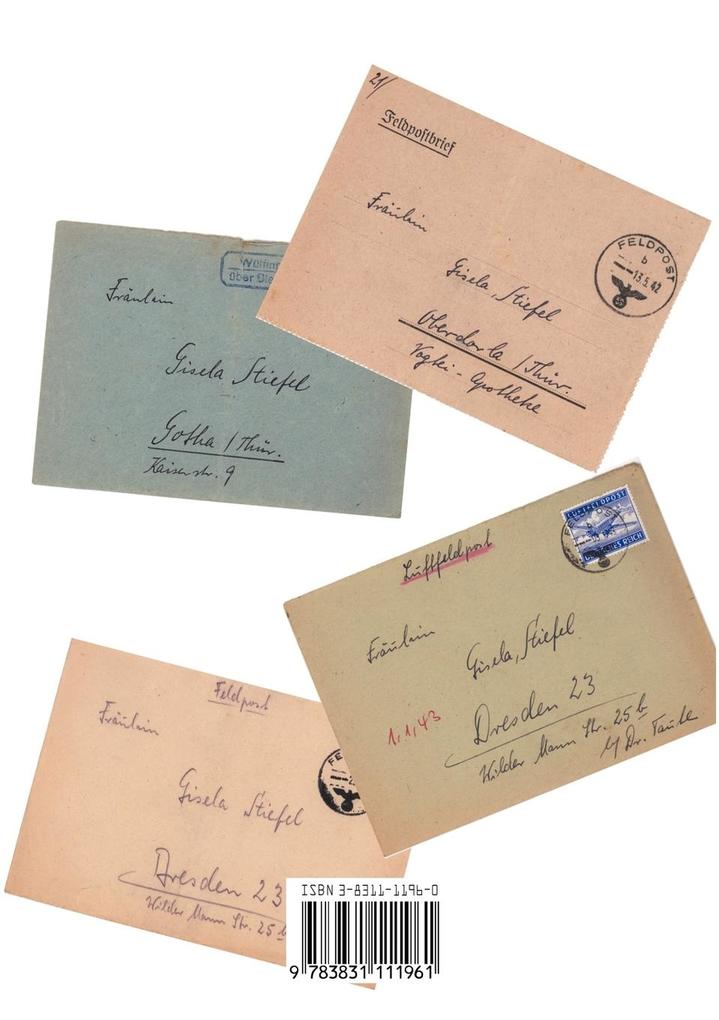 21/
Feldpostbrief
Fräulein
Gisela Stiefel
Oberdorla / Thür.
Vogtei - Apotheke
FELDPOST
b
13.5.42
über
Fräulein
Gisela Stiefel
Gotha / Thür.
Kaiserstr. 9
Luftfeldpost
LUFTFELDPOST
DEUTSCHES REICH
Fräulein
Gisela Stiefel
1.1.43
Dresden 23
Wilder Mann Str. 25 b
b/ Dr. Taute
Feldpost
Fräulein
Gisela Stiefel
Dresden 23
Wilder Mann Str. 25
ISBN 3-8311-1196-0
9 783831 111961